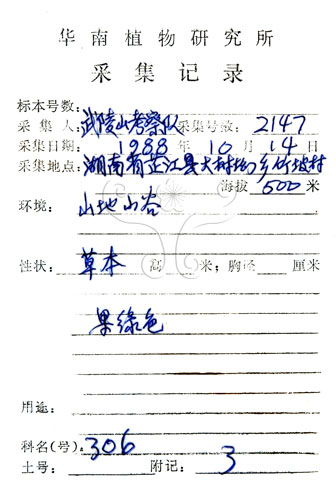 华南植物研究所
采集记录
标本号数:
采集人: 武陵山考察队 采集号数: 2147
采集日期: 1988 年 10 月 14 日
采集地点: 湖南省芷江县大树坳乡竹坡村
海拔 500 米
环境: 山地山谷
性状: 草本 高 米; 胸径 厘米
果绿色
用途:
科名(号): 306
土号: 附记: 3